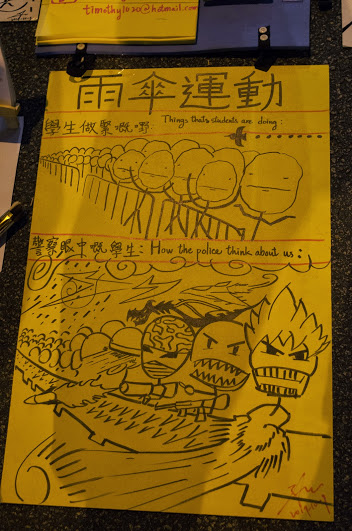 timothy1020@hotmail.com
雨傘運動
學生做緊嘅嘢
Things that students are doing:
警察眼中嘅學生: How the police think about us: